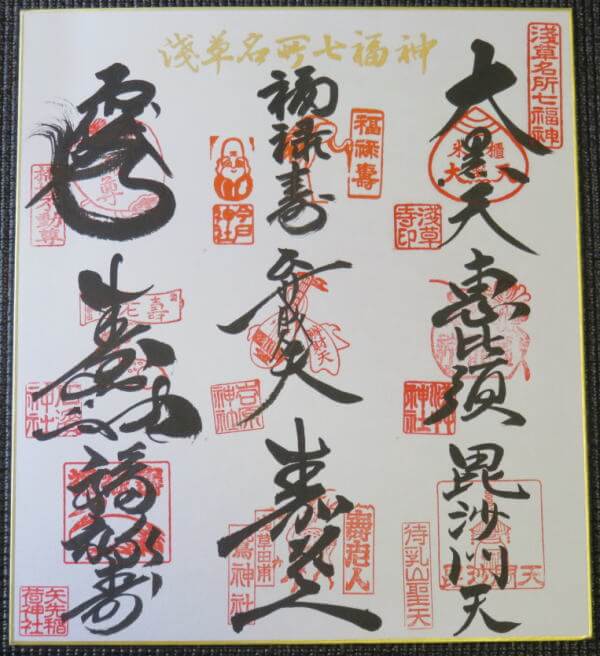 淺草名所七福神
淺草名所七福神
大黒天
淺草寺印
恵比須
毘沙門天
待乳山聖天
福禄寿
福祿壽
今戸神社
弁財天
吉原神社
壽老人
鷲神社
寿老神
石濱神社
福禄寿
矢先稲荷神社